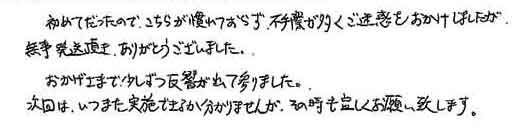 初めてだったので、こちらが慣れておらず、不手際が多くご迷惑をおかけしましたが、
無事発送頂き、ありがとうございました。
おかげさまで、少しずつ反響が出て参りました。
次回は、いつまた実施できるか分かりませんが、その時も宜しくお願い致します。